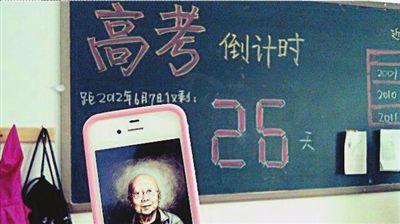 高考 倒计时
距2012年6月7日仅剩：
26天
近
2009
2010
2011